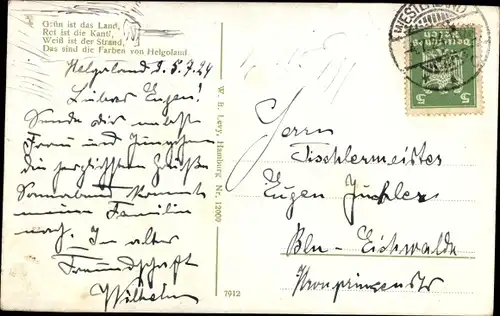 Grün ist das Land,
Rot ist die Kant',
Weiß ist der Strand,
Das sind die Farben von Helgoland
Helgoland 5.7.24
Lieber Eugen!
Sende dir nebst
Frau und Jungchen
die herzlichsten Grüße
Sonnabend kommt
meine Familie
nach. In alter
Freundschaft
Wilhelm
W. B. Levy, Hamburg Nr. 12009
7912
Deutsches
Reich
5 5
Herrn
Tischlermeister
Eugen
Bln-Eichwalde
Kronprinzenstr